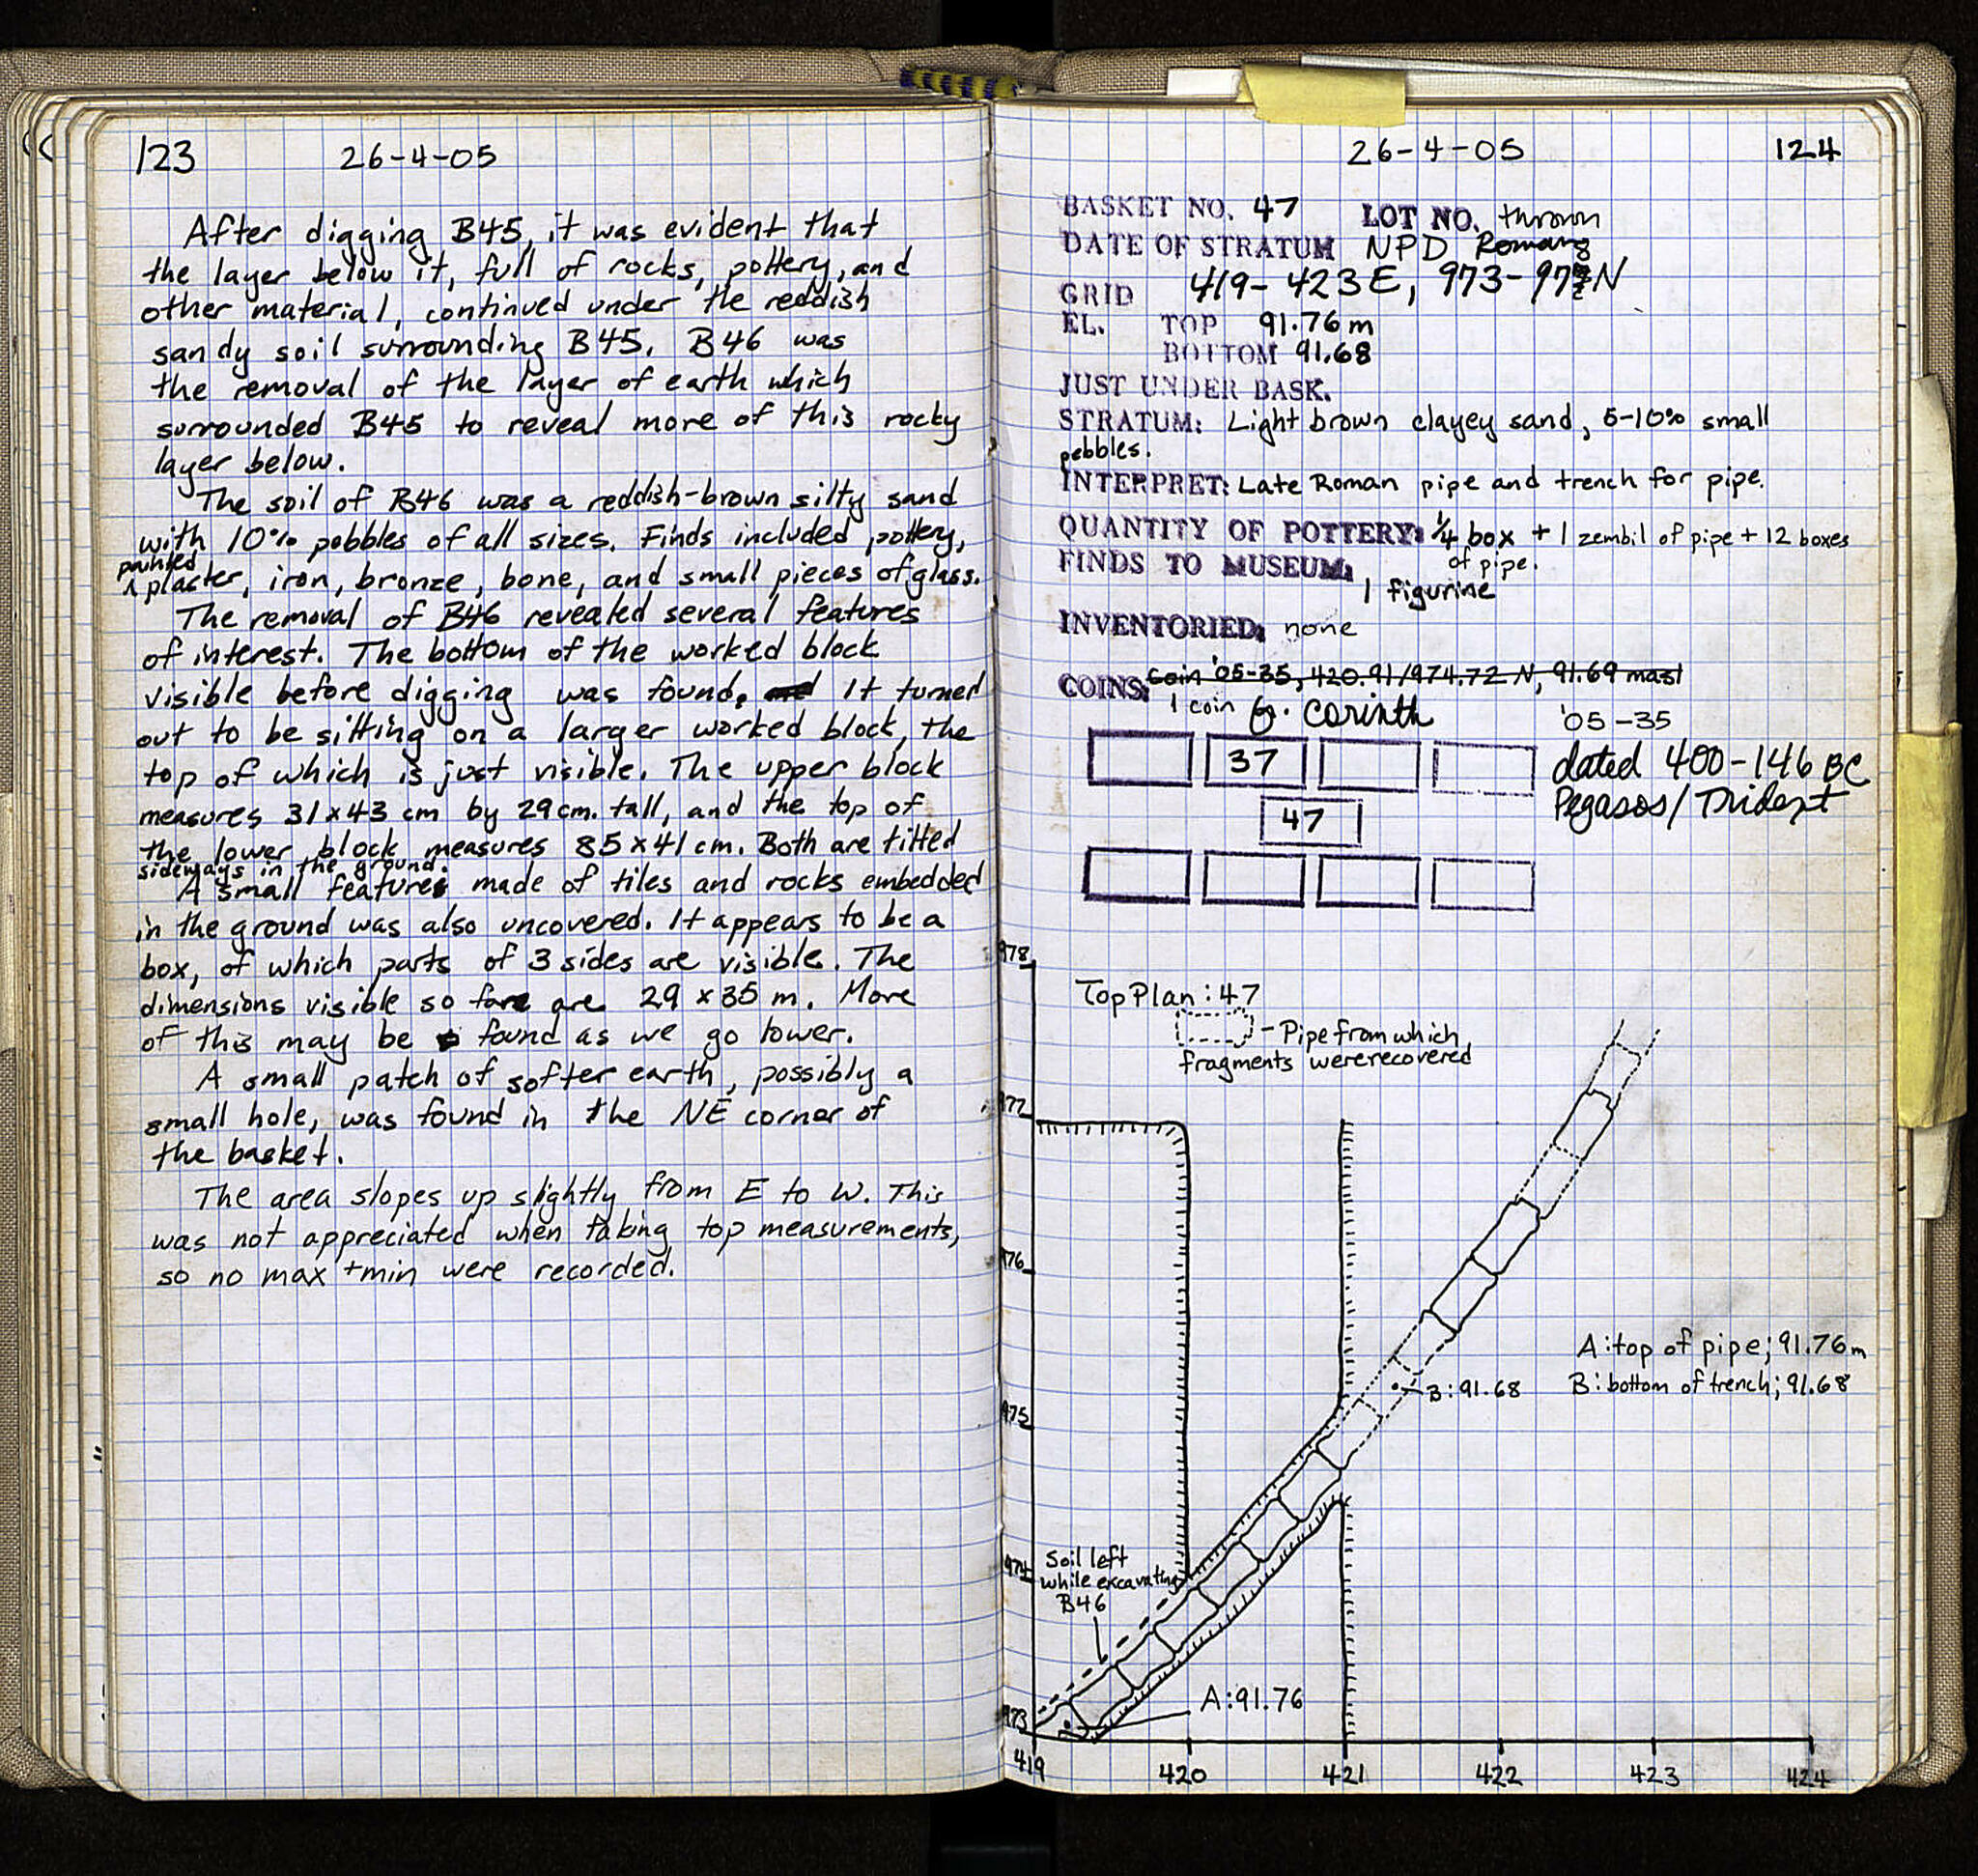 123 26-4-05
After digging B45, it was evident that
the layer below it, full of rocks, pottery, and
other material, continued under the reddish
sandy soil surrounding B45. B46 was
the removal of the layer of earth which
surrounded B45 to reveal more of this rocky
layer below.
The soil of B46 was a reddish-brown silty sand
with 10% pebbles of all sizes. Finds included pottery,
painted
plaster, iron, bronze, bone, and small pieces of glass.
The removal of B46 revealed several features
of interest. The bottom of the worked block
visible before digging was found. It turned
out to be sitting on a larger worked block, the
top of which is just visible. The upper block
measures 31x43 cm by 29cm. tall, and the top of
the lower block measures 85x41cm. Both are tilted
sideways in the ground.
A small feature made of tiles and rocks embedded
in the ground was also uncovered. It appears to be a
box, of which parts of 3 sides are visible. The
dimensions visible so far are 29 x 35 m. More
of this may be found as we go lower.
A small patch of softer earth, possibly a
small hole, was found in the NE corner of
the basket.
The area slopes up slightly from E to W. This
was not appreciated when taking top measurements,
so no max +min were recorded.
26-4-05 124
BASKET NO. 47 LOT NO. thrown
DATE OF STRATUM NPD Roman
GRID 419-423E, 973-97 N
EL. TOP 91.76m
BOTTOM 91.68
JUST UNDER BASK.
STRATUM: Light brown clayey sand, 5-10% small
pebbles.
INTERPRET: Late Roman pipe and trench for pipe.
QUANTITY OF POTTERY: 1/4 box + 1 zembil of pipe + 12 boxes
of pipe.
FINDS TO MUSEUM: 1 figurine
INVENTORIED: none
COINS: coin '05-35, 420.91/974.72 N, 91.69 masl
1 coin G. Corinth '05-35
dated 400-146 BC
Pegasos/Trident
37
47
978
Top Plan: 47
- Pipe from which
fragments were recovered
977
976
A: top of pipe; 91.76m
B: 91.68 B: bottom of trench; 91.68
975
974 Soil left
while excavating
B46
A: 91.76
973
419 420 421 422 423 424